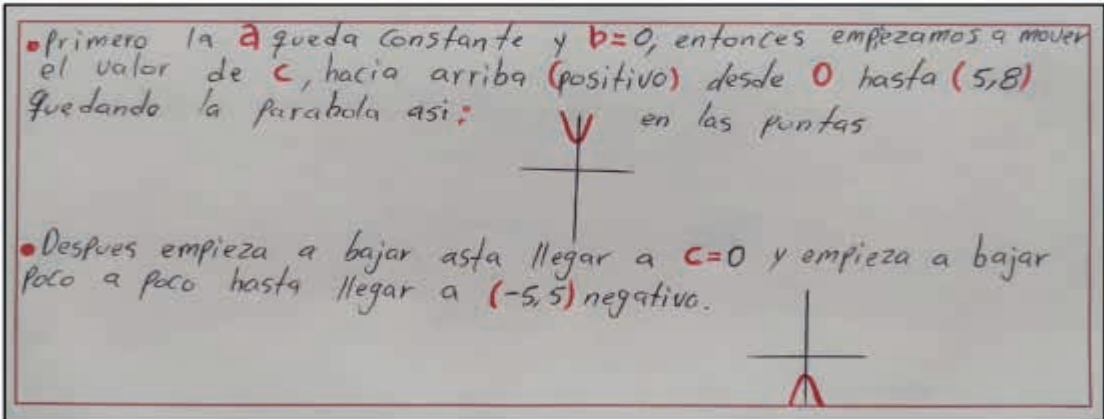 •Primero la a queda constante y b=0, entonces empezamos a mover
el valor de c, hacia arriba (positivo) desde 0 hasta (5,8)
quedando la parabola asi: en las puntas
•Despues empieza a bajar asta llegar a c=0 y empieza a bajar
poco a poco hasta llegar a (-5,5) negativo.